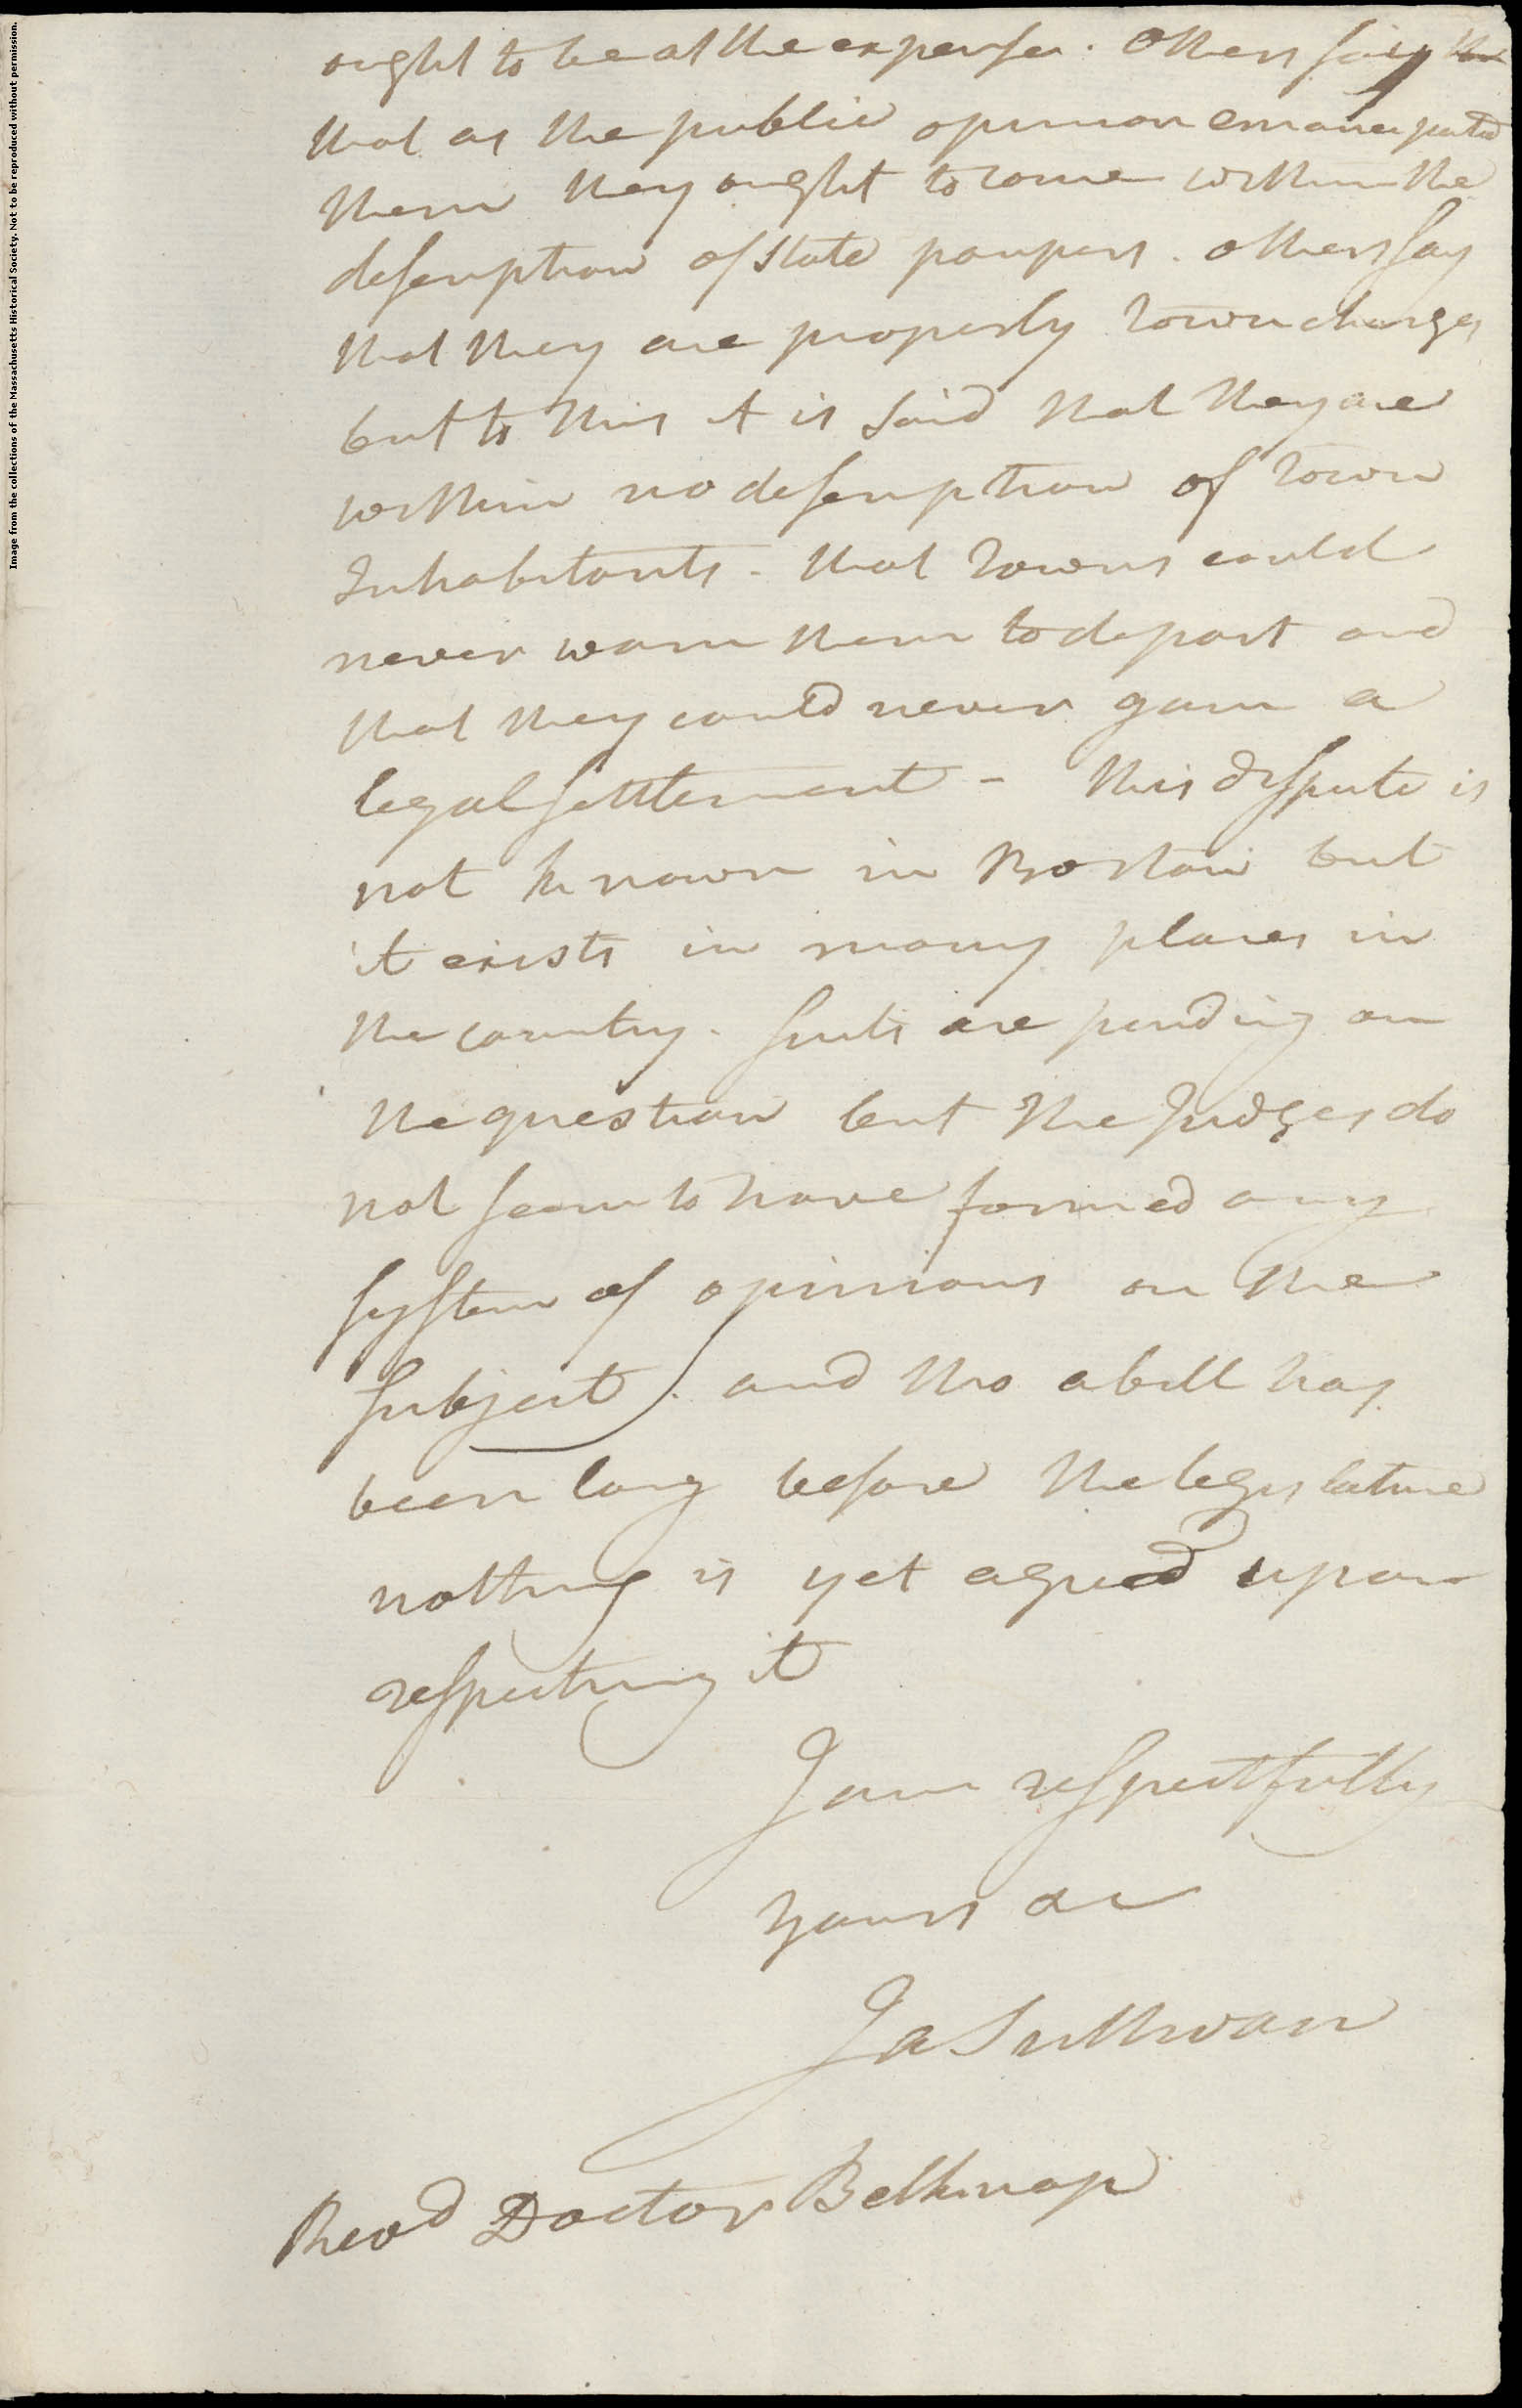 Image from the collections of the Massachusetts Historical Society. Not to be reproduced without permission.
ought to be at the expense. Others say the
that as the public opinion emancipated
them they ought to come within the
description of State paupers. others say
that they are properly Town charges
but to this it is Said that they are
within no description of Town
Inhabitants - that Towns could
never warn them to depart and
that they could never gain a
legal settlement - this dispute is
not known in Boston but
it exists in many places in
the country. suits are pending on
the question but the Judges do
not seem to have formed any
system of opinions on the
subject. and tho a bill has
been long before the legislature
nothing is yet agreed upon
respecting it
I am respectfully
yours &c
Ja Sullivan
Revd Doctor Belknap